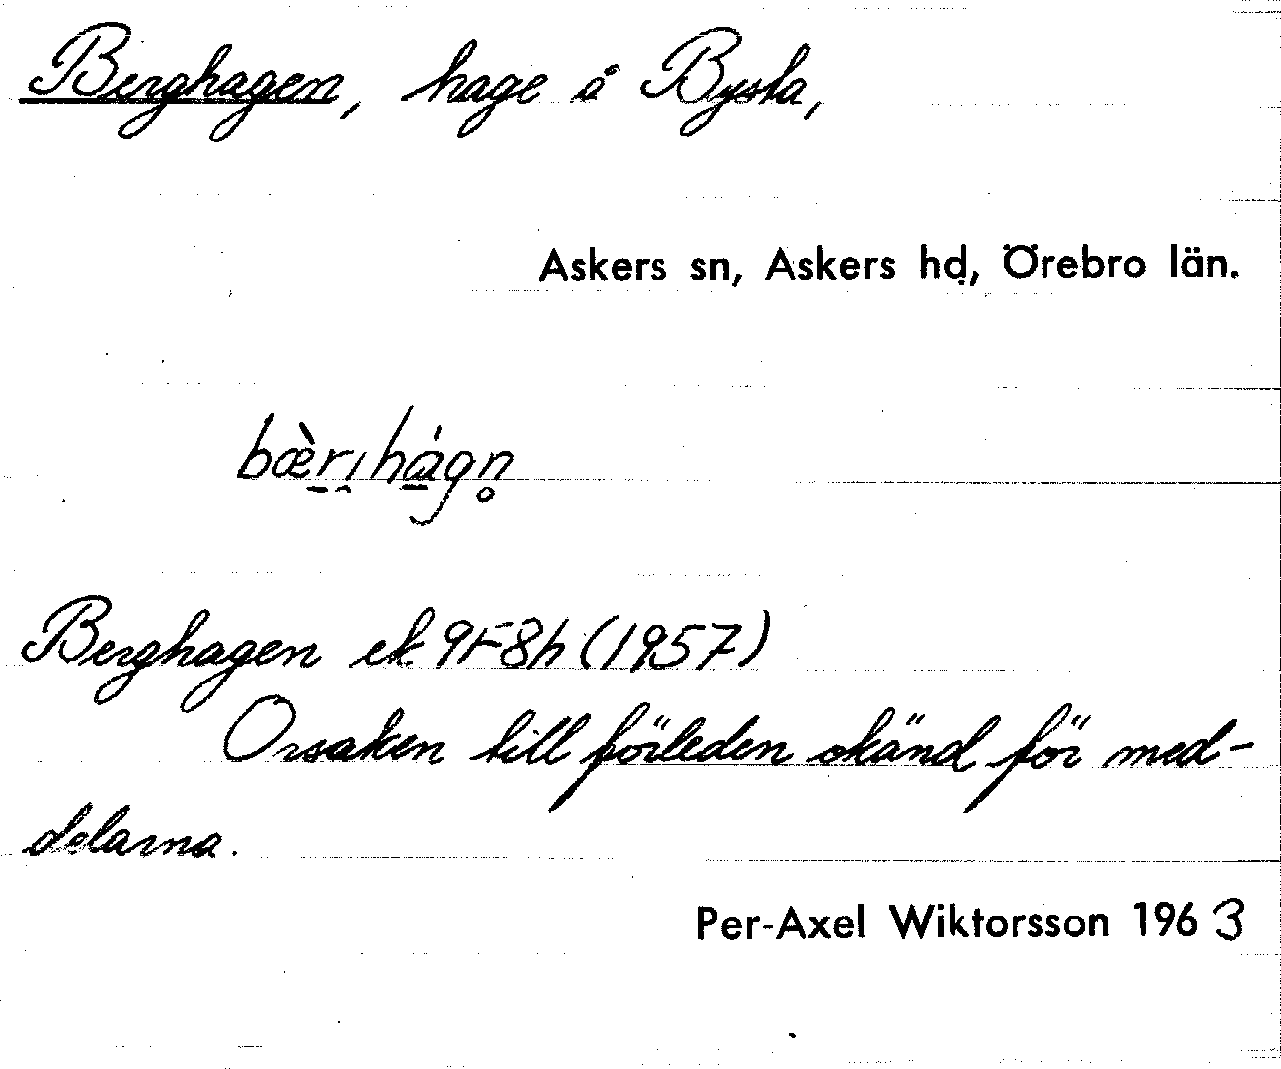 Berghagen, hage å Bysta,
Askers sn, Askers hd, Örebro län.
bæ̀r̠ı̯há̠gn̥
Berghagen ek 9F8h (1957)
Orsaken till förleden okänd för med-
delarna.
Per-Axel Wiktorsson 1963